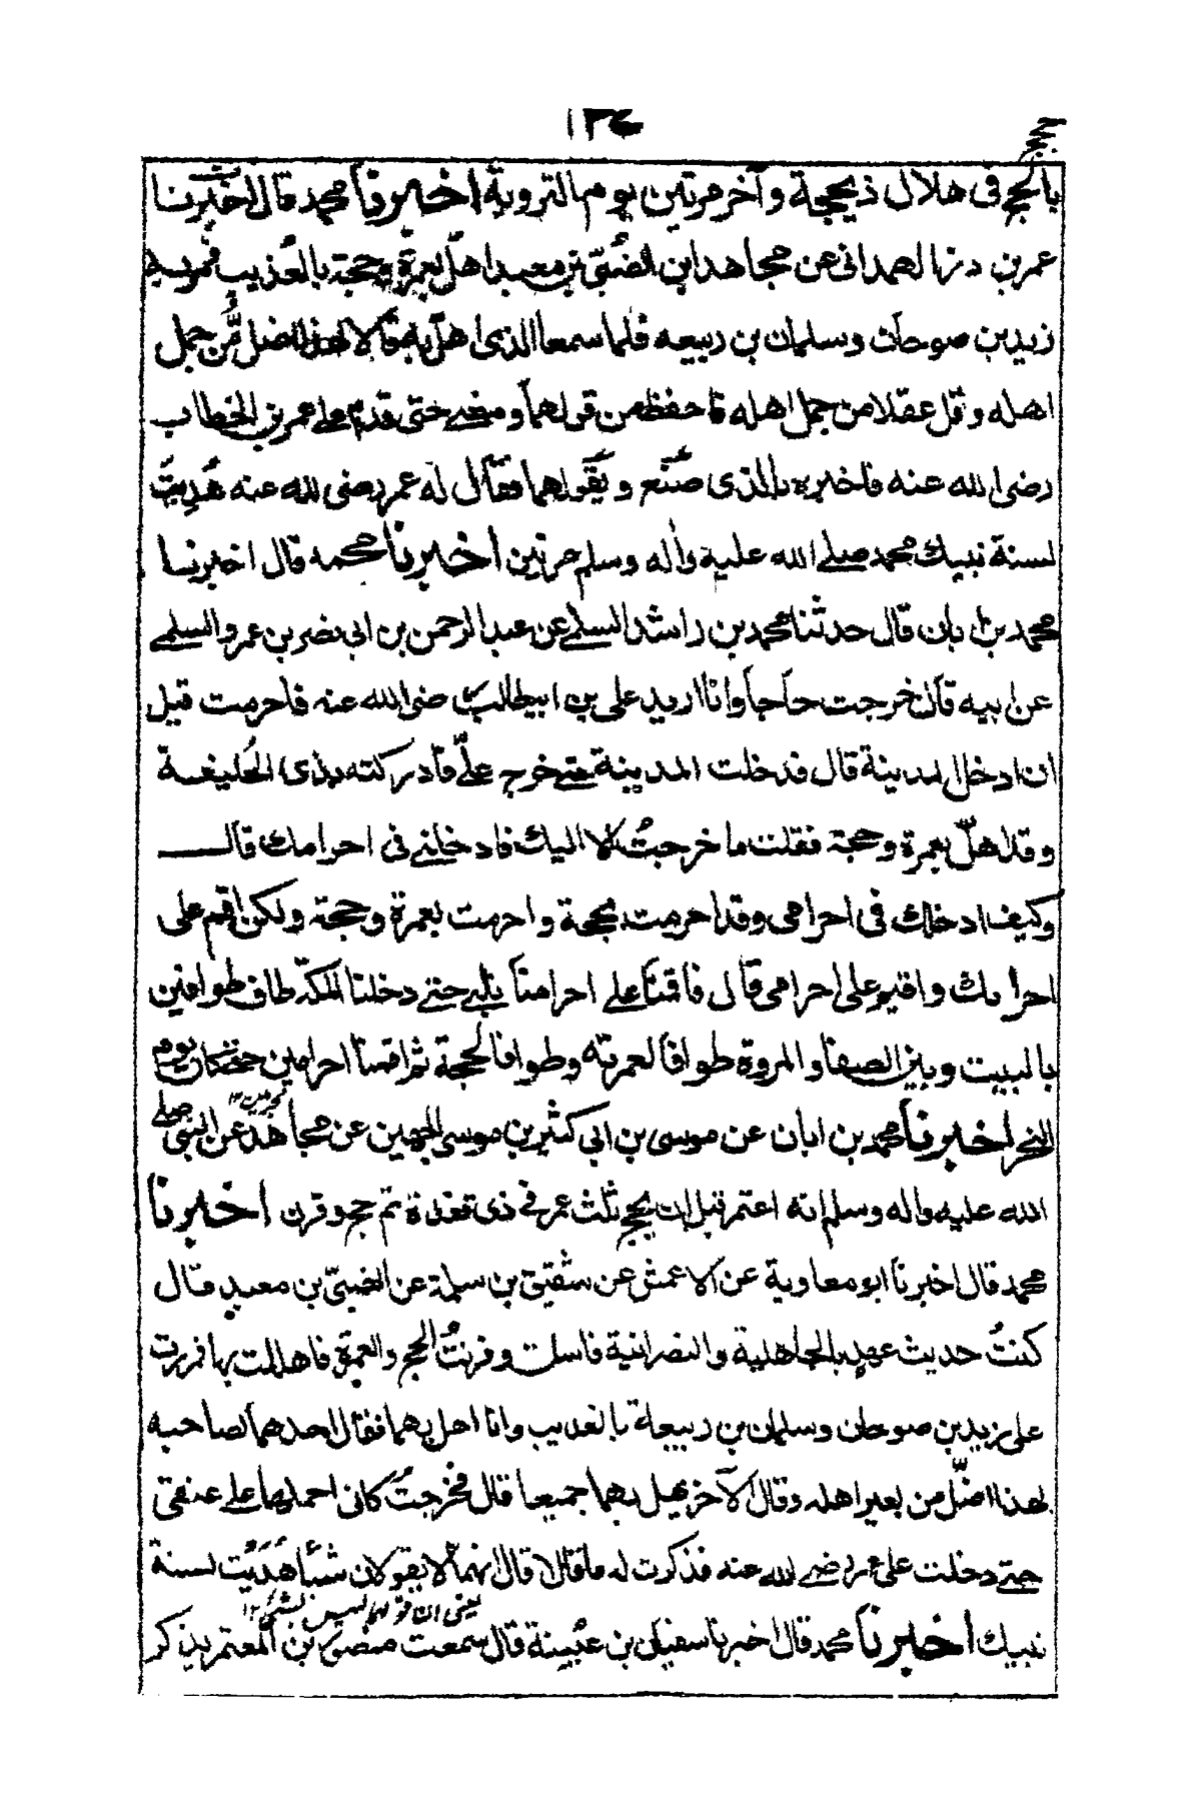 ١٣٤
حج
بالحج فى هلال ذيحجة وآخر مرتين يوم التروية اخبرنا محمد قال اخبرنا
عمر بن ذر الهمدانى عن مجاهد ابن الضُبىّ بن معبد اهلّ بعمرة وحجة بالعُذيب فمر به
زيد بن صوحان وسلمان بن ربيعه فلما سمعا الذى اهلّ به قالا لهذا اضل من جمل
اهله وقل عقلا من جمل اهله فاحفظه من قولهما ومضے حتى قدم على عمر بن الخطاب
رضى الله عنه فاخبره بالذى صنع وبقولهما فقال له عمر رضى الله عنه هُدِيتَ
لسنة نبيك محمد صلے الله عليه واٰله وسلم مرتين اخبرنا محمد قال اخبرنا
محمد بن ابان قال حدثنا محمد بن راشد السلمے عن عبد الرحمن بن ابى نصر بن عمرو السلمے
عن ابيه قال خرجت حاجا وانا اريد على بن ابيطالب رضى الله عنه فاحرمت قبل
ان ادخل المدينة قال فدخلت المدينة حتے خرج علىّ فادركته بذى الحُليفة
وقد اهلّ بعمرة وحجة فقلت ما خرجتُ الا اليك فادخلنے فى احرامك قال
وكيف ادخلك فى احرامى وقد احرمت بحجة واحرمت بعمرة وحجة ولكن اقم على
احرامك واقيم على احرامى قال فاقمنا علے احرامنا نلبے حتے دخلنا المكة طاف طوافين
بالبيت وبين الصفا والمروة طوافا لعمرته وطوافا لحجة ثم اقمنا احرامين حتے كان يوم
النحر اخبرنا محمد بن ابان عن موسى بن ابى كثير بن موسى الجهمين عن مجاهد عن النبى صلے
الله عليه واله وسلم انه اعتمر قبل ان يحج ثلث عمر فى ذى قعدة ثم حج وقرن اخبرنا
محمد قال اخبرنا ابو معاوية عن الاعمش عن شقيق بن سلمة عن الضبىّ بن معبد قال
كنتُ حديث عهد بالجاهلية والنصرانية فاسلمت وقرنتُ الحج والعمرة فاهللت بهما فمررت
على زيد بن صوحان وسلمان بن ربيعة بالعذيب وانا اهل بهما فقال احدهما لصاحبه
لهذا اضلّ من بعير اهله وقال الآخر يهل بهما جميعا قال فخرجت كانى احملهما علے عنقى
حتے دخلت على عمر رضے الله عنه فذكرت له ما قالا قال انهما لا يقولان شيئا هُدَيْتَ لسنة
يعنى ان قولهما ليس بشئ ١٢
نبيك اخبرنا محمد قال اخبرنا سفيان بن عيينة قال سمعت منصور بن المعتمر يذكر